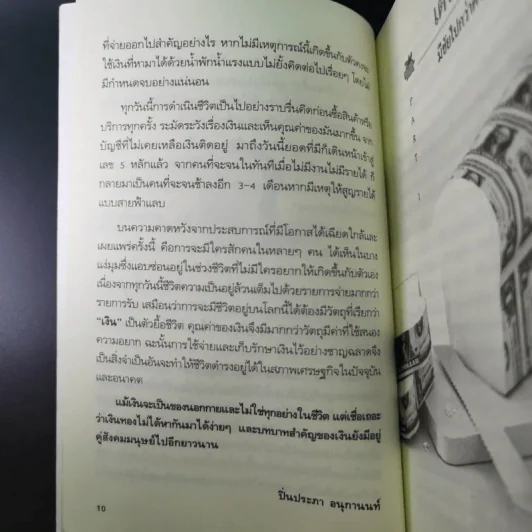 ที่จ่ายออกไปสำคัญอย่างไร หากไม่มีเหตุการณ์นี้เกิดขึ้นกับตัวคงจะ
ใช้เงินที่หามาได้ด้วยน้ำพักน้ำแรงแบบไม่ยั้งคิดต่อไปเรื่อยๆ โดยไม่
มีกำหนดจบอย่างแน่นอน
ทุกวันนี้การดำเนินชีวิตเป็นไปอย่างราบรื่นคิดก่อนซื้อสินค้าหรือ
บริการทุกครั้ง ระมัดระวังเรื่องเงินและเห็นคุณค่าของมันมากขึ้น จาก
บัญชีที่ไม่เคยเหลือเงินติดอยู่ มาถึงวันนี้ยอดที่มีก็เดินหน้าเข้าสู่
เลข 5 หลักแล้ว จากคนที่จะจนในทันทีเมื่อไม่มีงานไม่มีรายได้ ก็
กลายมาเป็นคนที่จะจนช้าลงอีก 3-4 เดือนหากมีเหตุให้สูญรายได้
แบบสายฟ้าแลบ
บนความคาดหวังจากประสบการณ์ที่มีโอกาสได้เฉียดใกล้และ
เผยแพร่ครั้งนี้ คือการจะมีใครสักคนในหลายๆ คน ได้เห็นในบาง
แง่มุมซึ่งแอบซ่อนอยู่ในช่วงชีวิตที่ไม่มีใครอยากให้เกิดขึ้นกับตัวเอง
เนื่องจากทุกวันนี้ชีวิตความเป็นอยู่ล้วนเต็มไปด้วยรายการจ่ายมากกว่า
รายการรับ เสมือนว่าการจะมีชีวิตอยู่บนโลกนี้ได้ต้องมีวัตถุที่เรียกว่า
"เงิน" เป็นตัวยื้อชีวิต คุณค่าของเงินจึงมีมากกว่าวัตถุมีค่าที่ใช้สนอง
ความอยาก ฉะนั้นการใช้จ่ายและเก็บรักษาเงินไว้อย่างชาญฉลาดจึง
เป็นสิ่งจำเป็นอันจะทำให้ชีวิตดำรงอยู่ได้ในสภาพเศรษฐกิจในปัจจุบัน
และอนาคต
แม้เงินจะเป็นของนอกกายและไม่ใช่ทุกอย่างในชีวิต แต่เชื่อเถอะ
ว่าเงินทองไม่ได้หากันมาได้ง่ายๆ และบทบาทสำคัญของเงินยังมีอยู่
คู่สังคมมนุษย์ไปอีกยาวนาน
ปิ่นประภา อนุกานนท์
10